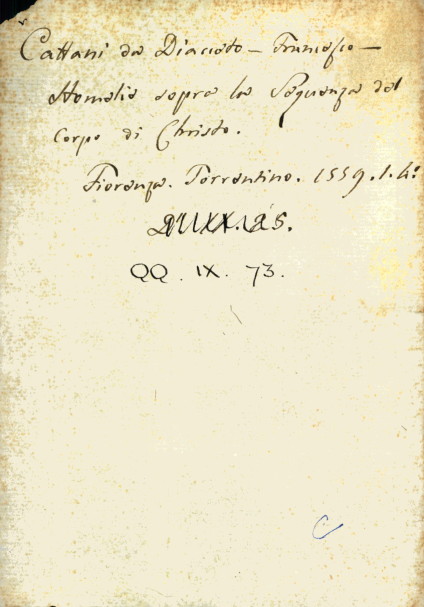 Cattani da Diaceto - Francesco -
Homelia sopra la Sequenza del
Corpo di Christo.
Fiorenza. Torrentino. 1559. 1. 4º
QQ. IX. 73.